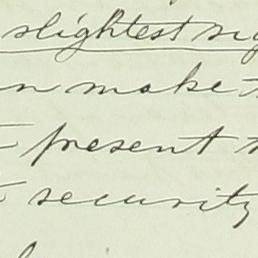 slightest
make
present
security